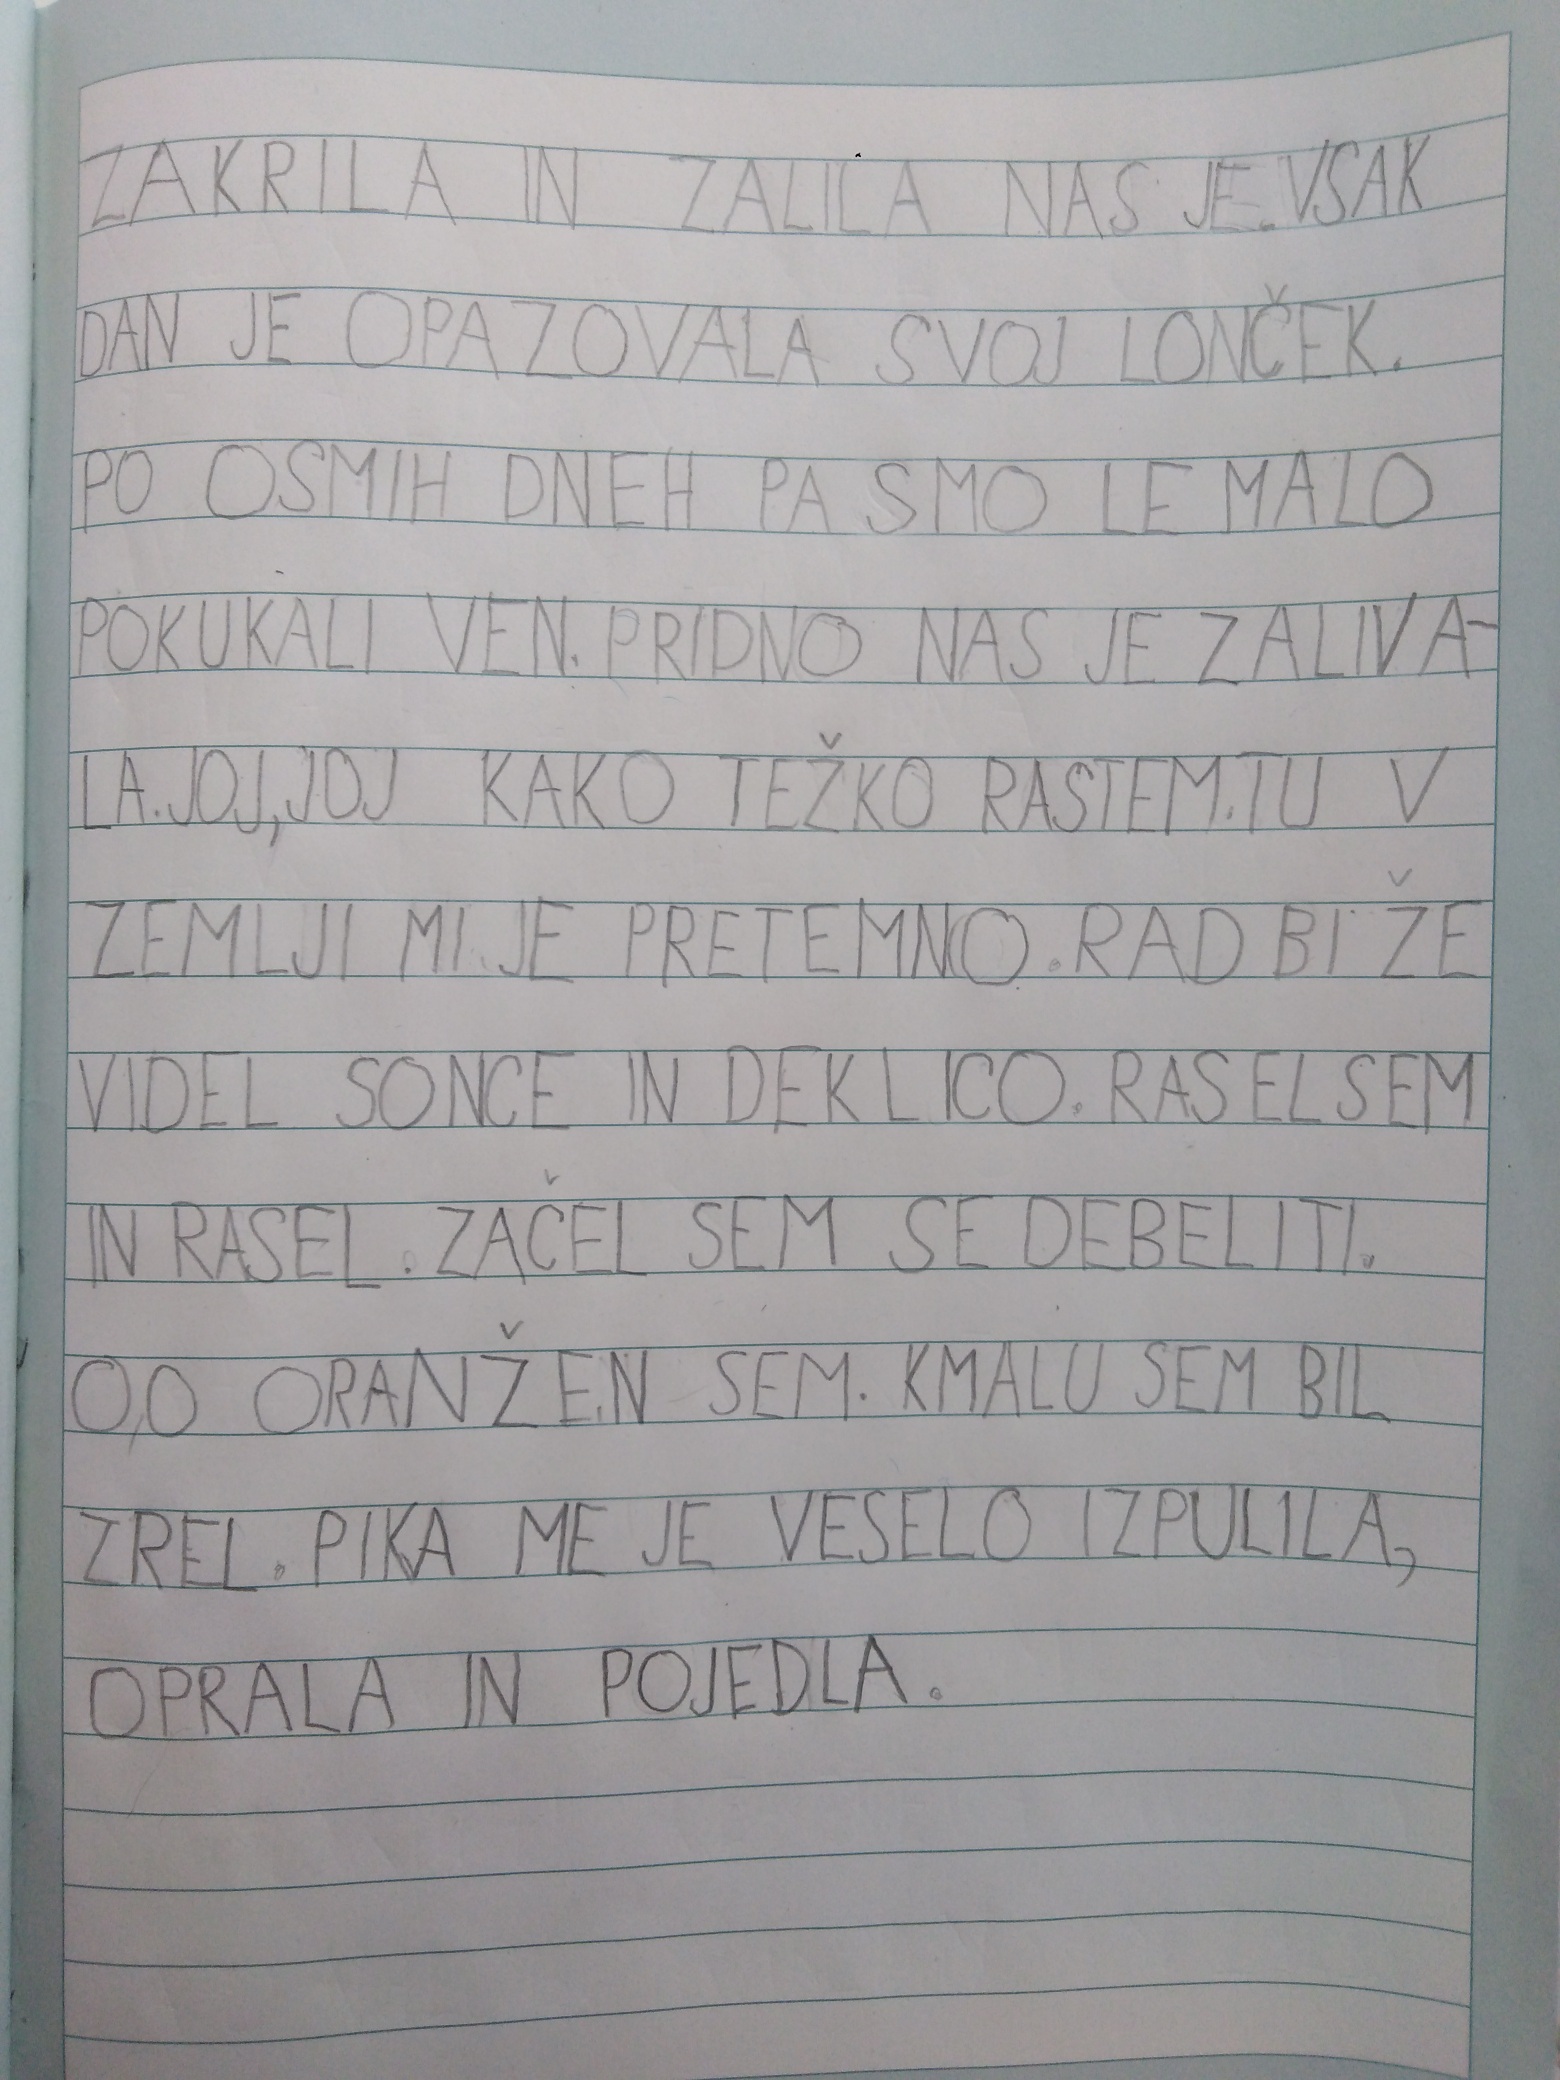 ZAKRILA IN ZALILA NAS JE. VSAK
DAN JE OPAZOVALA SVOJ LONČEK.
PO OSMIH DNEH PA SMO LE MALO
POKUKALI VEN. PRIDNO NAS JE ZALIVA-
LA. JOJ, JOJ KAKO TEŽKO RASTEM. TU V
ZEMLJI MI JE PRETEMNO. RAD BI ŽE
VIDEL SONCE IN DEKLICO. RASEL SEM
IN RASEL. ZAČEL SEM SE DEBELITI.
O, O ORANŽEN SEM. KMALU SEM BIL
ZREL. PIKA ME JE VESELO IZPULILA,
OPRALA IN POJEDLA.